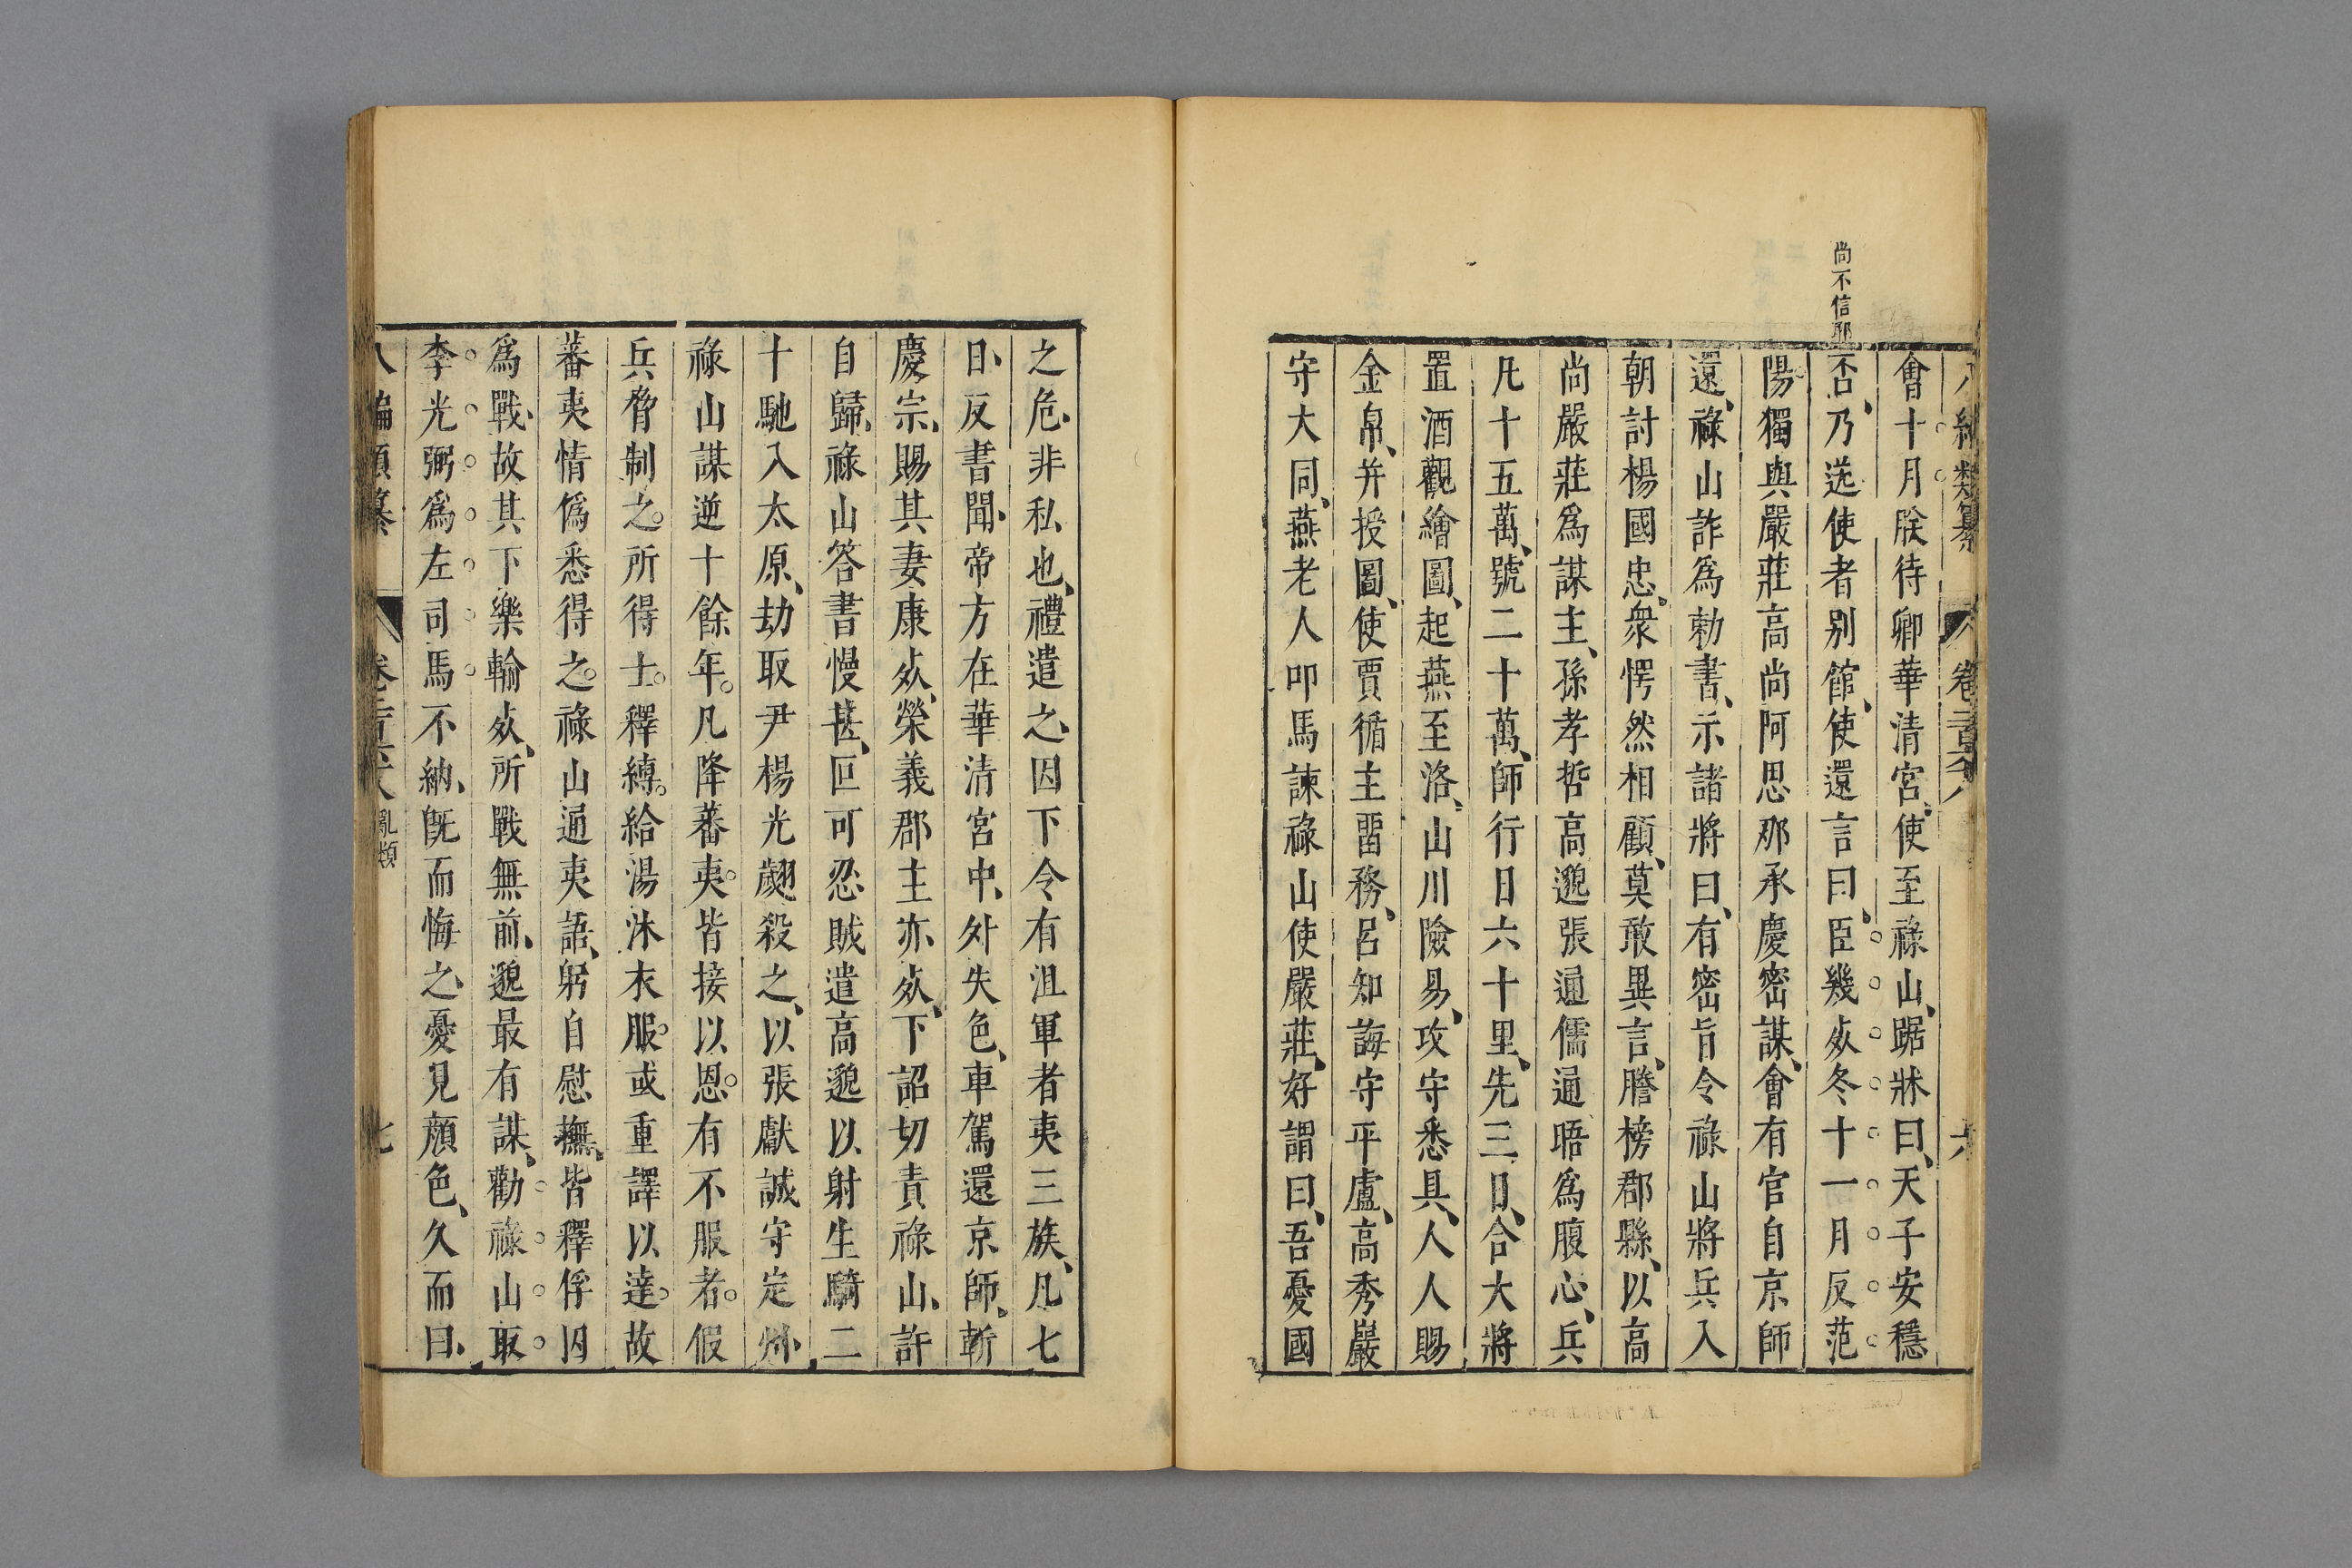 尚不信邪
會十月朕待卿華清宮、使至祿山、踞牀曰、天子安穩
否、乃送使者别館、使還言曰、臣幾㱔冬十一月反范
陽獨與嚴莊高尚阿思那承慶密謀、會有官自京師
還、祿山詐為勅書、示諸將曰、有密旨令祿山將兵入
朝討楊國忠、衆愕然相顧、莫敢異言、謄榜郡縣、以高
尚嚴莊爲謀主、孫孝哲高邈張通儒通晤爲腹心、兵
凡十五萬、號二十萬、師行日六十里、先三日、合大將
置酒觀繪圖、起燕至洛、山川險易、攻守悉具、人人賜
金帛、并授圖、使賈循主畱務、呂知誨守平盧、高秀巖
守大同、燕老人叩馬諫祿山使嚴莊、好謂曰、吾憂國
之危、非私也、禮遣之、因下令有沮軍者夷三族、凡七
日、反書聞、帝方在華清宮中、外失色、車駕還京師、斬
慶宗、賜其妻康㱔、榮義郡主亦㱔、下詔切責祿山、許
自歸、祿山答書慢甚、叵可忍賊遣高邈以射生騎二
十馳入太原、劫取尹楊光翽殺之、以張獻誠守定州、
祿山謀逆十餘年。凡降蕃夷。皆接以恩。有不服者。假
兵脅制之。所得士。釋縛。給湯沐衣服。或重譯以達。故
蕃夷情僞悉得之。祿山通夷語、躬自慰撫、皆釋俘囚
爲戰、故其下樂輸㱔、所戰無前、邈最有謀、勸祿山取
李光弼爲左司馬不納、旣而悔之、憂見顔色、久而曰、
八編類纂 亂類 七